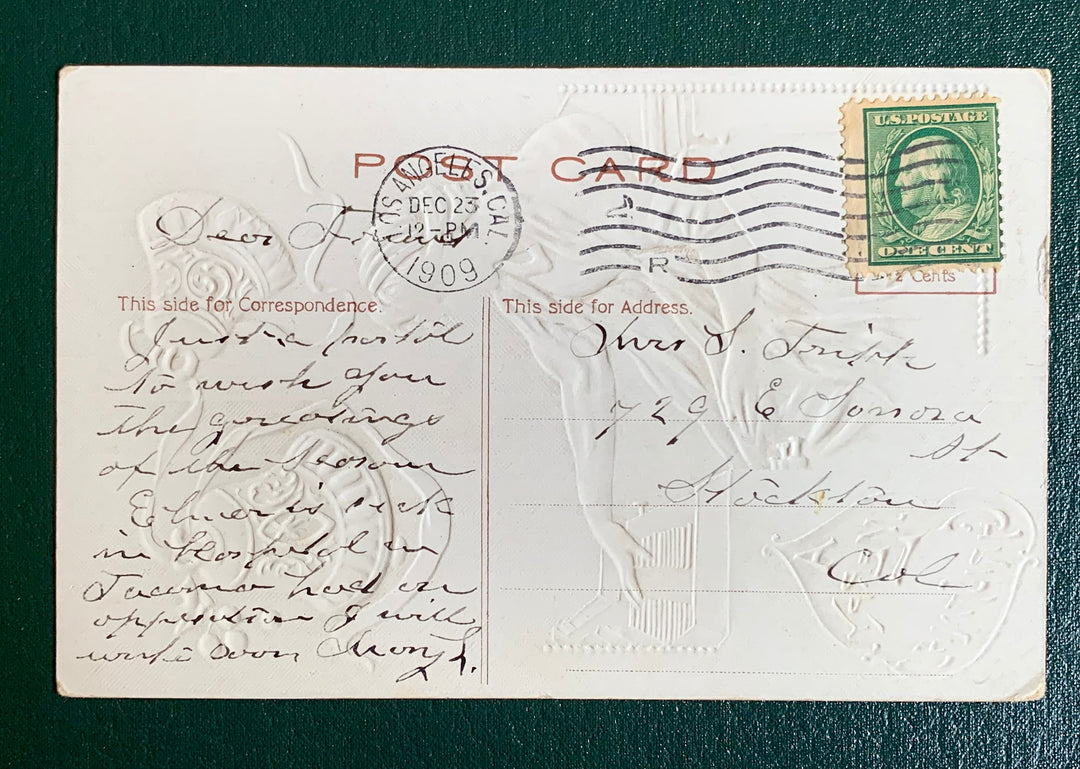 POST CARD
U.S. POSTAGE
ONE CENT
LOS ANGELES, CAL.
DEC 23
12-PM
1909
R
2 Cents
This side for Correspondence.
Dear Friend
Just a postil
to wish you
the greetings
of the Seasoun
Elmer is sick
in Hospital in
Tacoma had an
oppiration I will
write soon Mary L.
This side for Address.
Mrs S.
729 E Sonora
St
Stockton
Cal